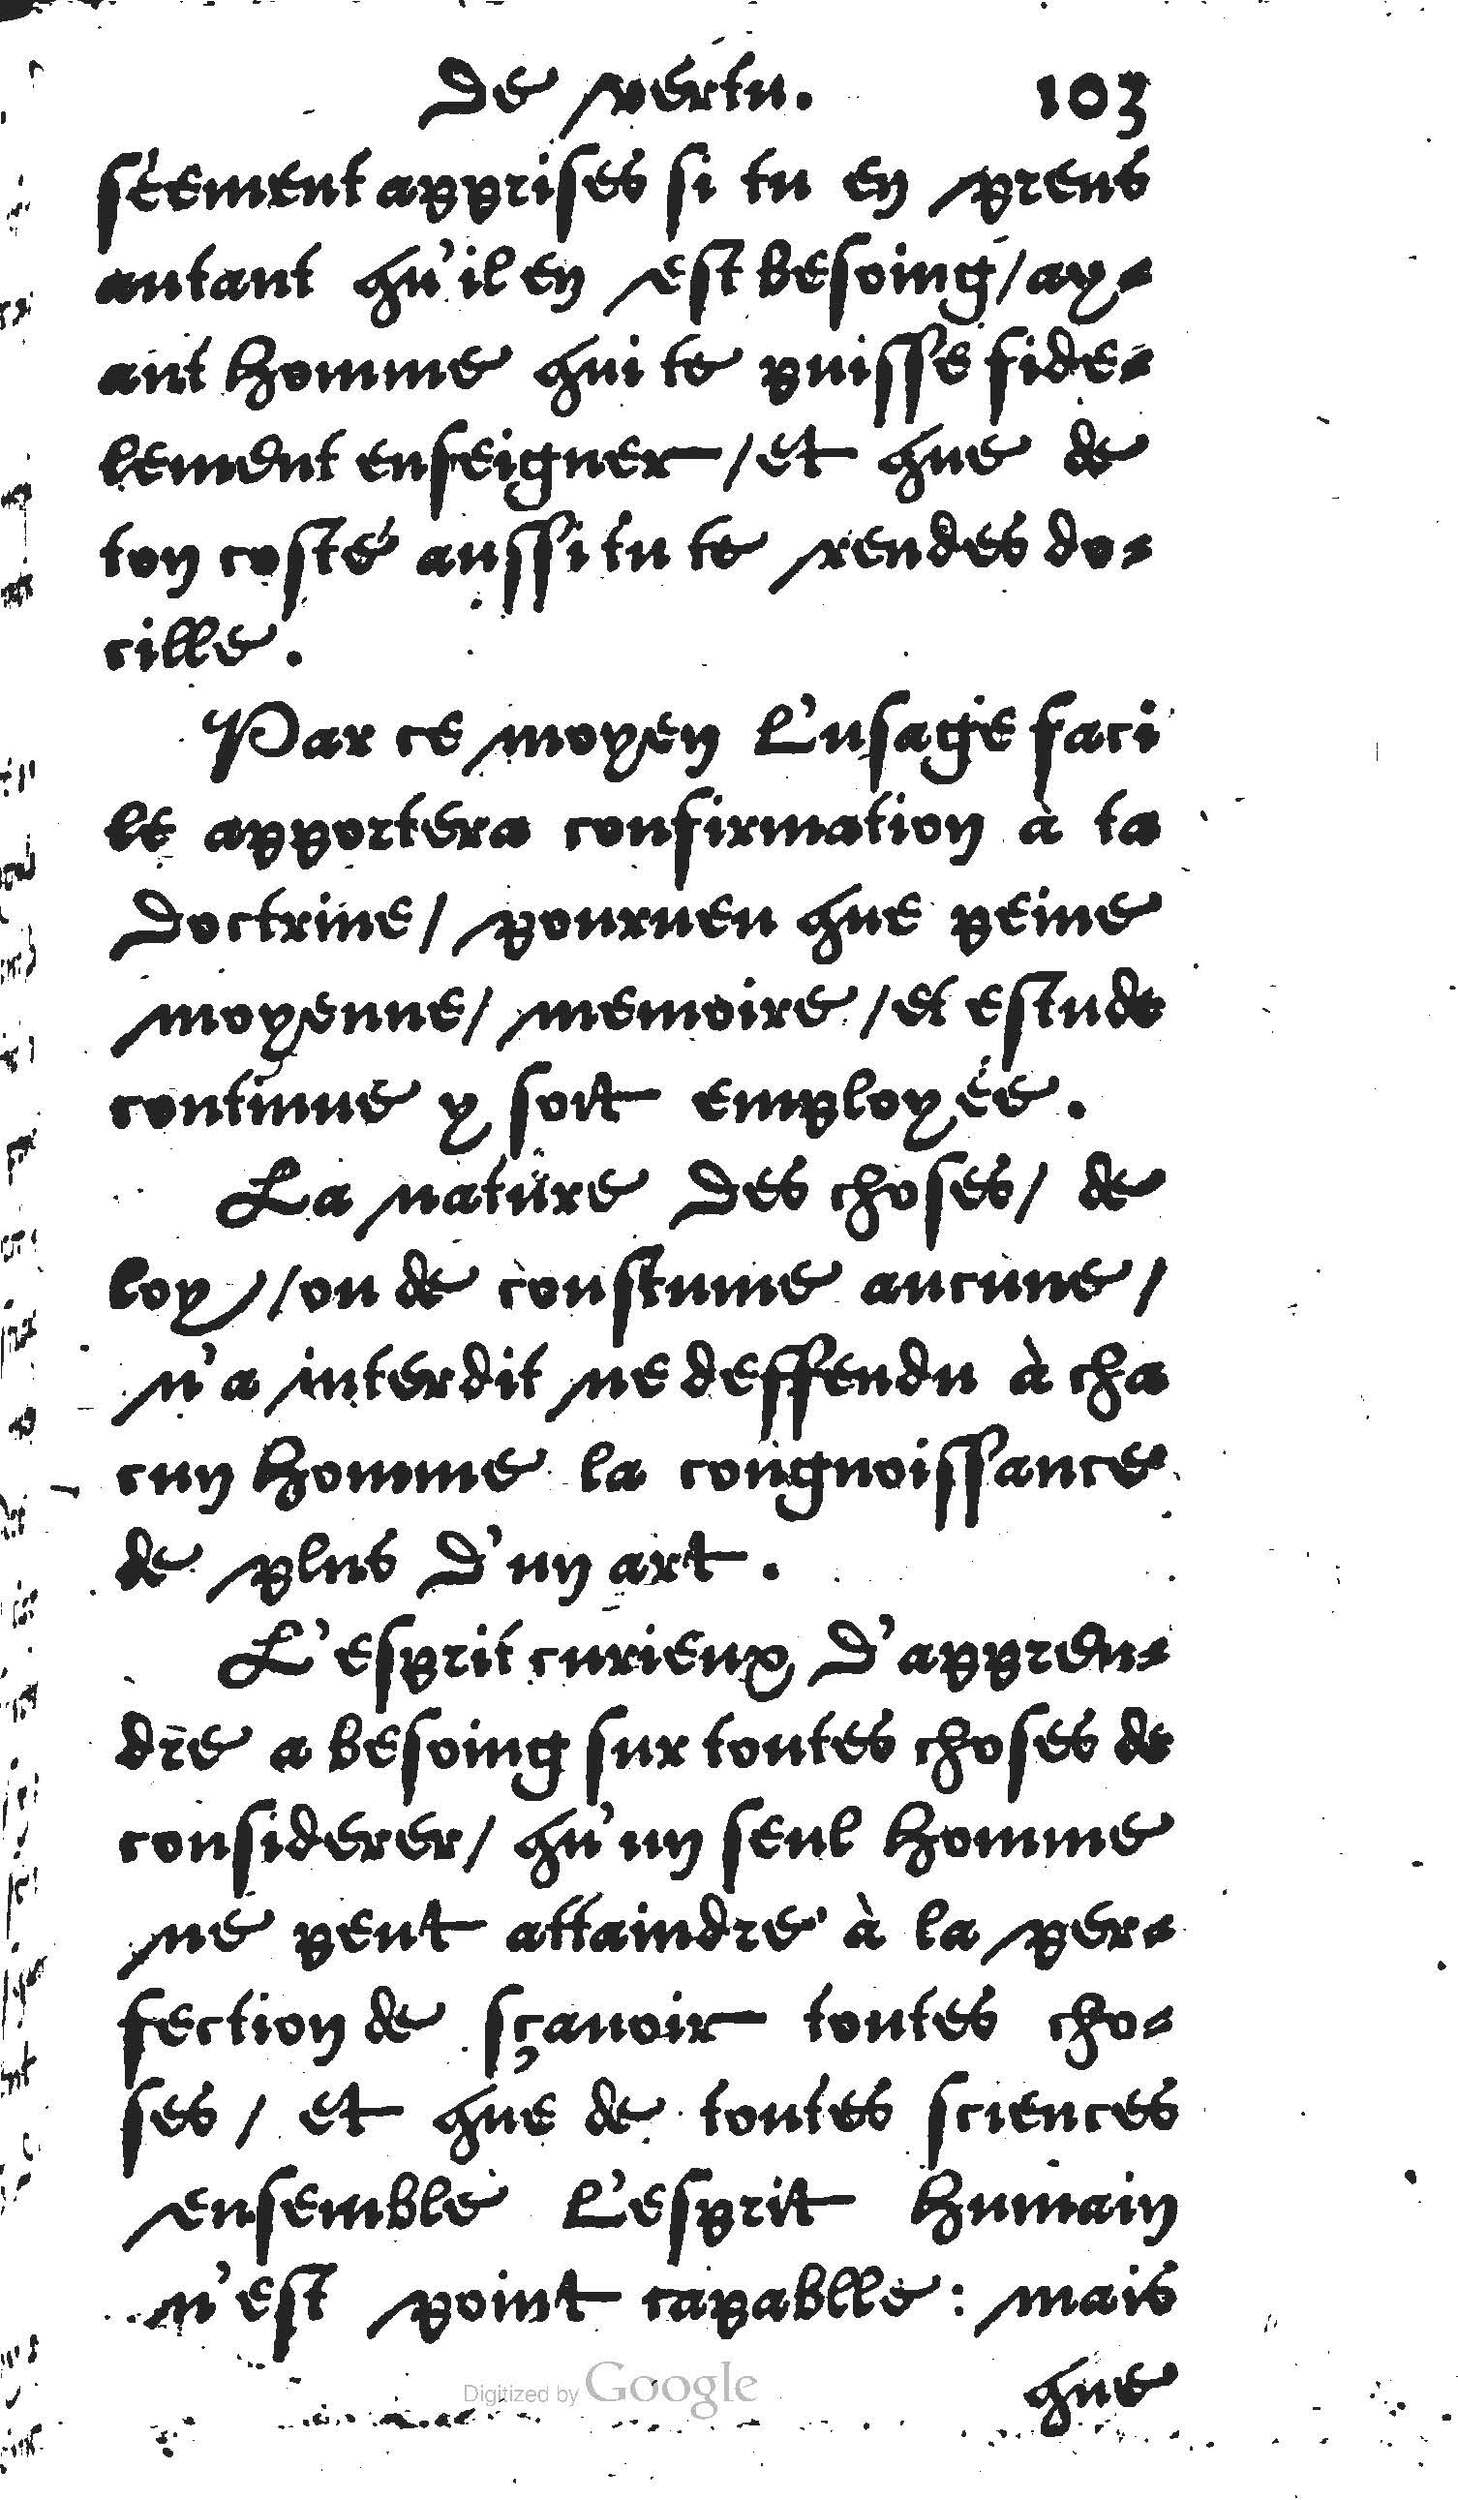 De vertu. 103
séement apprises si tu en prens
autant qu'il en est besoing/ay-
ant homme qui te puisse fide-
lement enseigner/et que de
ton costé aussi tu te rendes do-
cille.
Par ce moyen l'usage faci
le apportera confirmation à ta
doctrine/ pourueu que peine
moyenne/ memoire/et estude
continue y soit employée.
La nature des choses/ de
loy/ou de coustume aucune/
n'a interdit ne deffendu à cha
cun homme la congnoissance
de plus d'un art.
L'esprit curieux d'appren-
dre a besoing sur toutes choses de
considerer/ qu'un seul homme
ne peut attaindre à la per-
fection de sçauoir toutes cho-
ses/ et que de toutes sciences
ensemble l'esprit humain
n'est point capablle: mais
que
Digitized by Google